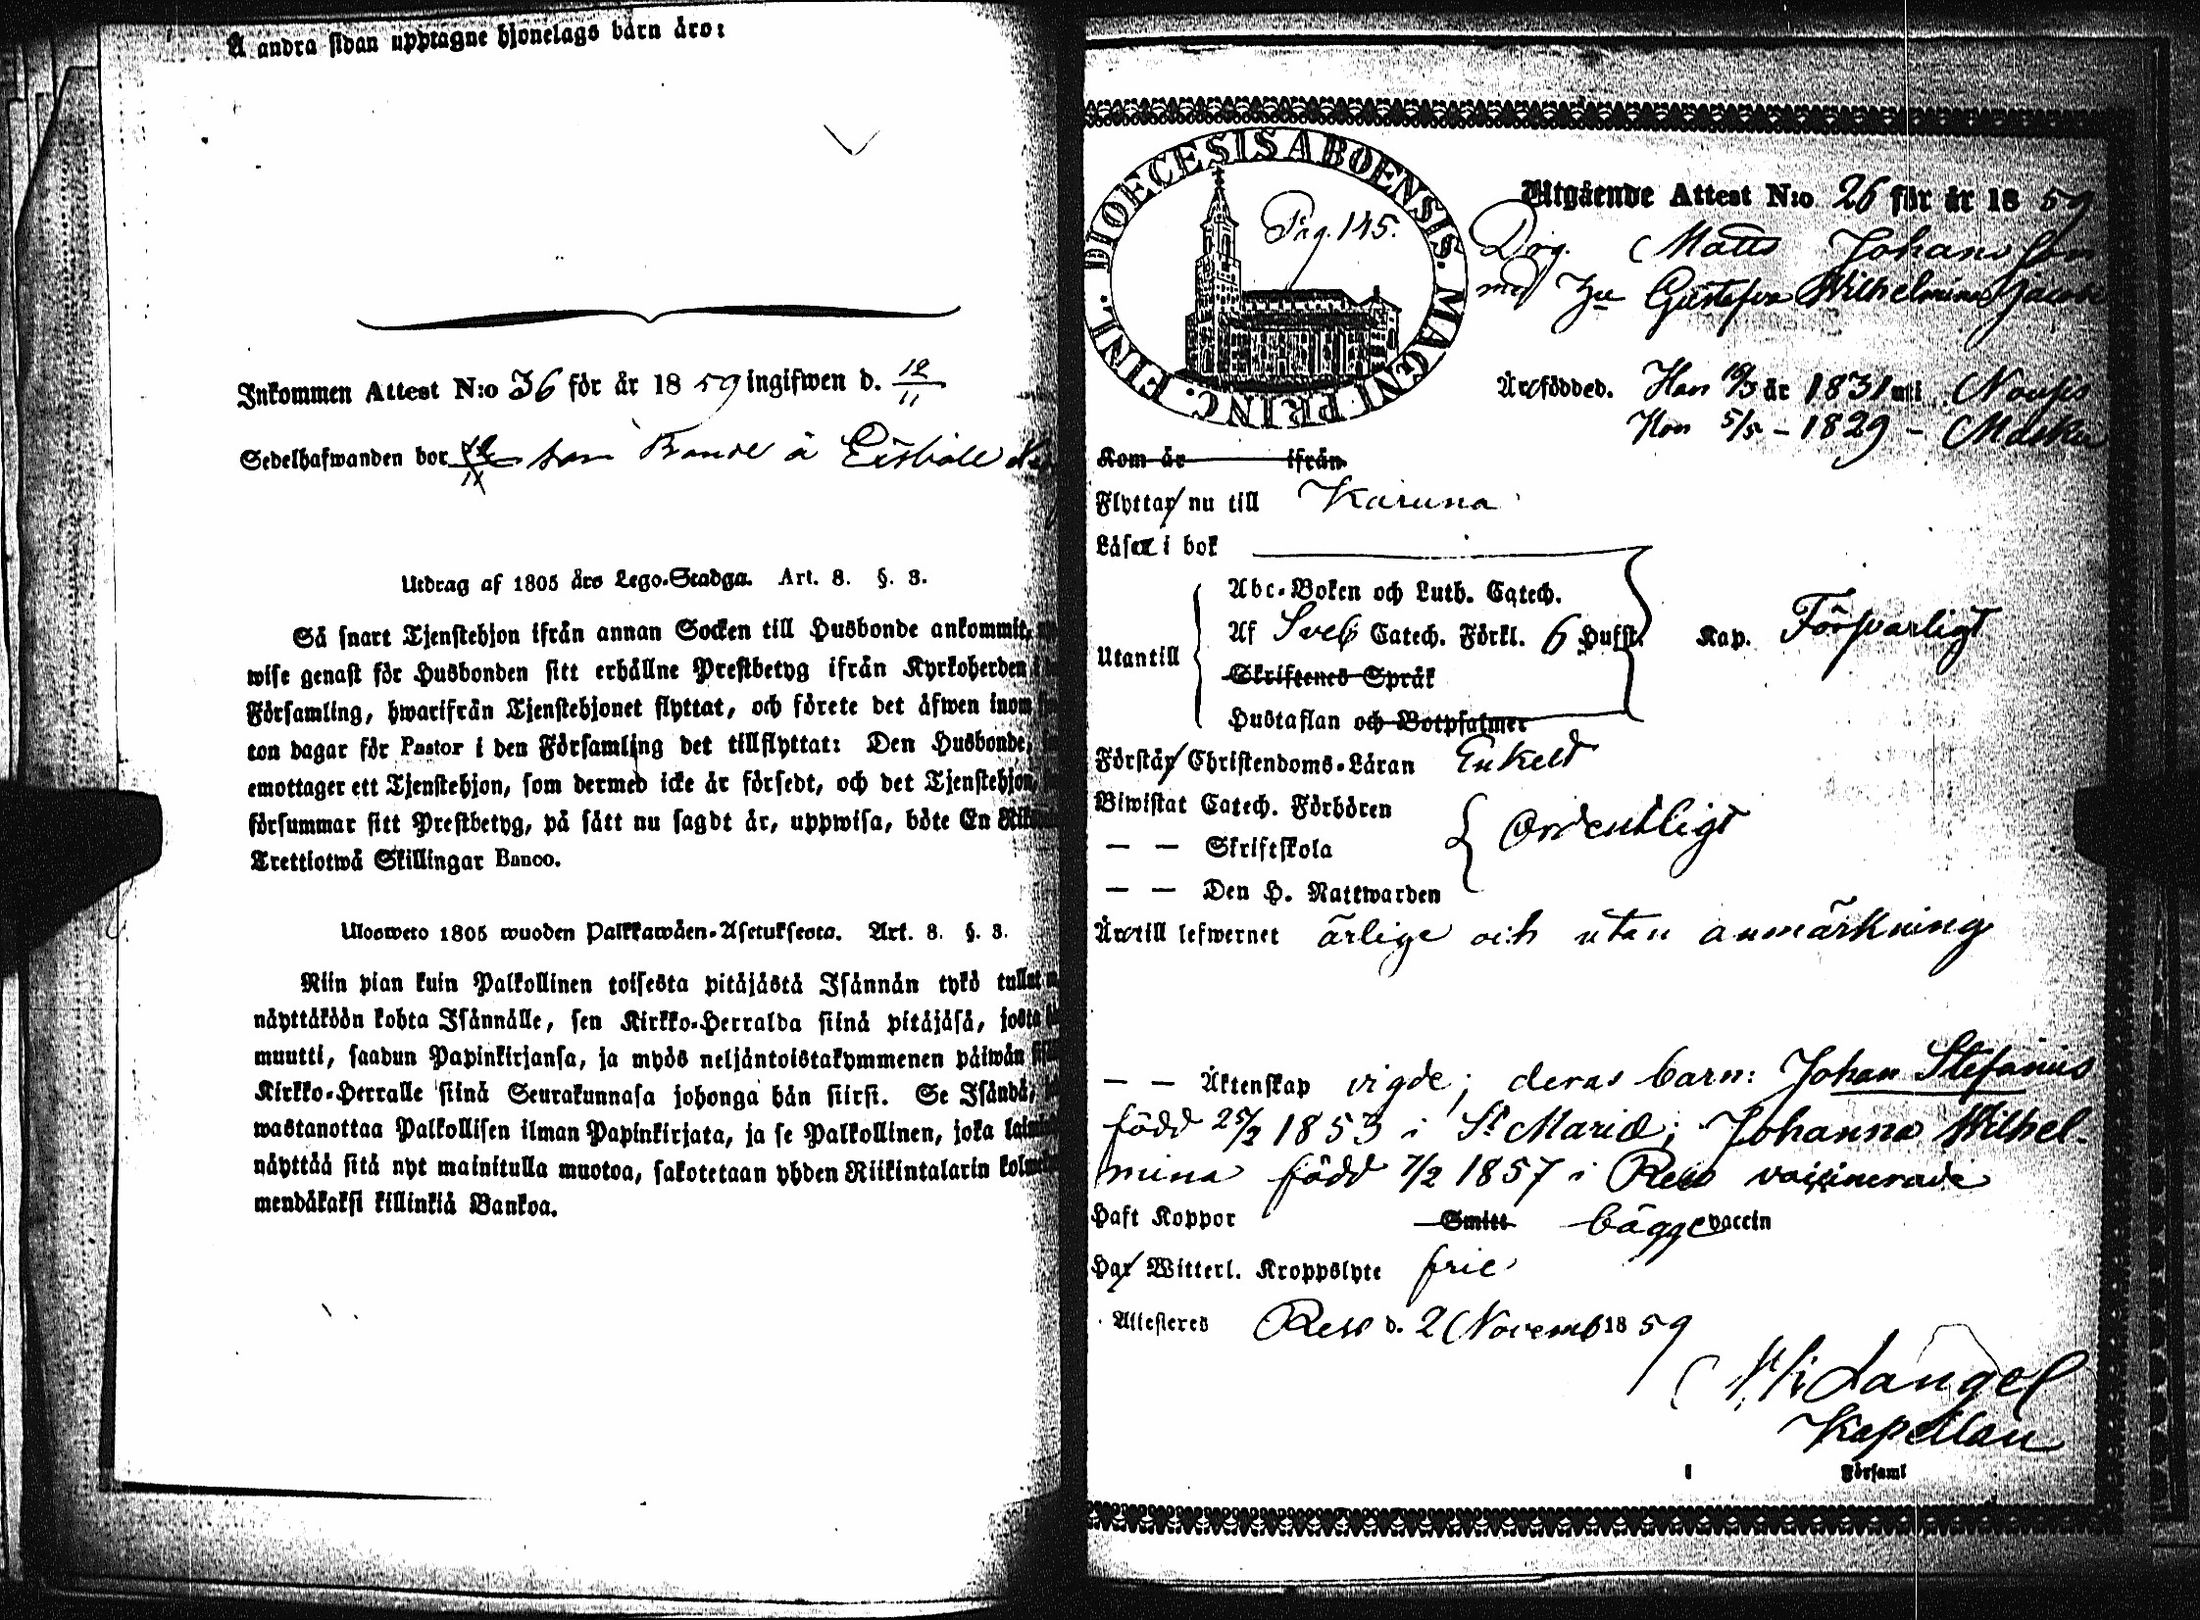 Å andra sidan upptagne hjonelags barn äro:
Inkommen Attest N:o 36 för år 1859 ingifwen d. 12/11
Sedelhafwanden bor som Bonde å
Utdrag af 1805 års Lego-Stadga. Art. 8. §. 3.
Så snart Tjenstehjon ifrån annan Socken till Husbonde ankommit,
wise genast för Husbonden sitt erhållne Prestbetyg ifrån Kyrkoherden i
Församling, hwarifrån Tjenstehjonet flyttat, och förete det äfwen inom
ton dagar för Pastor i den Församling det tillflyttat: Den Husbonde,
emottager ett Tjenstehjon, som dermed icke är försedt, och det Tjenstehjon,
försummar sitt Prestbetyg, på sätt nu sagdt är, uppwisa, böte En
Trettiotwå Skillingar Banco.
Ulosweto 1805 wuoden Palkkawäen-Asetuksesta. Art. 8. §. 3.
Niin pian kuin Palkollinen toisesta pitäjästä Isännän tykö tullut
näyttäköön kohta Isännälle, sen Kirkko-Herralda siinä pitäjäsä, josta
muutti, saadun Papinkirjansa, ja myös neljäntoistakymmenen päiwän
Kirkko-Herralle siinä Seurakunnasa johonga hän siirsi. Se Isändä,
wastanottaa Palkollisen ilman Papinkirjata, ja se Palkollinen, joka
näyttää sitä nyt mainitulla muotoa, sakotetaan yhden Riikintalarin
mendäkaksi killinkiä Bankoa.
DIOECESIS ABOENSIS. MAGNI PRINC. FINL.
Pag. 145.
Utgående Attest N:o 26 för år 1859
Drg. Matts Johansson
med Hu Gustafva Wilhelmina Jacobs
Är födded. Han 19/3 år 1831 uti Nousis
Hon 5/5 - 1829 - Masku
Kom år ifrån
Flyttar nu till Karuna
Läser i bok
Utantill
Abc-Boken och Luth. Catech.
Af Sveb Catech. Förkl. 6 Hufst. Kap. Försvarligt
Skriftenes Språk
Hustaflan och Botpsalmer
Förstår Christendoms-Läran Enkelt
Biwistat Catech. Förhören
— — Skriftskola
Ordentligt
— — Den H. Nattwarden
Är till lefwernet ärlige och utan anmärkning
— — Äktenskap vigde; deras barn: Johan Stefanus
född 25/2 1853 i St Mariæ; Johanna Wilhel-
mina född 7/2 1857 i Reso vaccinerade
Haft Koppor Smitt bägge vaccin
Har Witterl. Kroppslyte frie
Attesteres Reso d. 2 Novemb 1859
Langel
Kapellan
i Församl